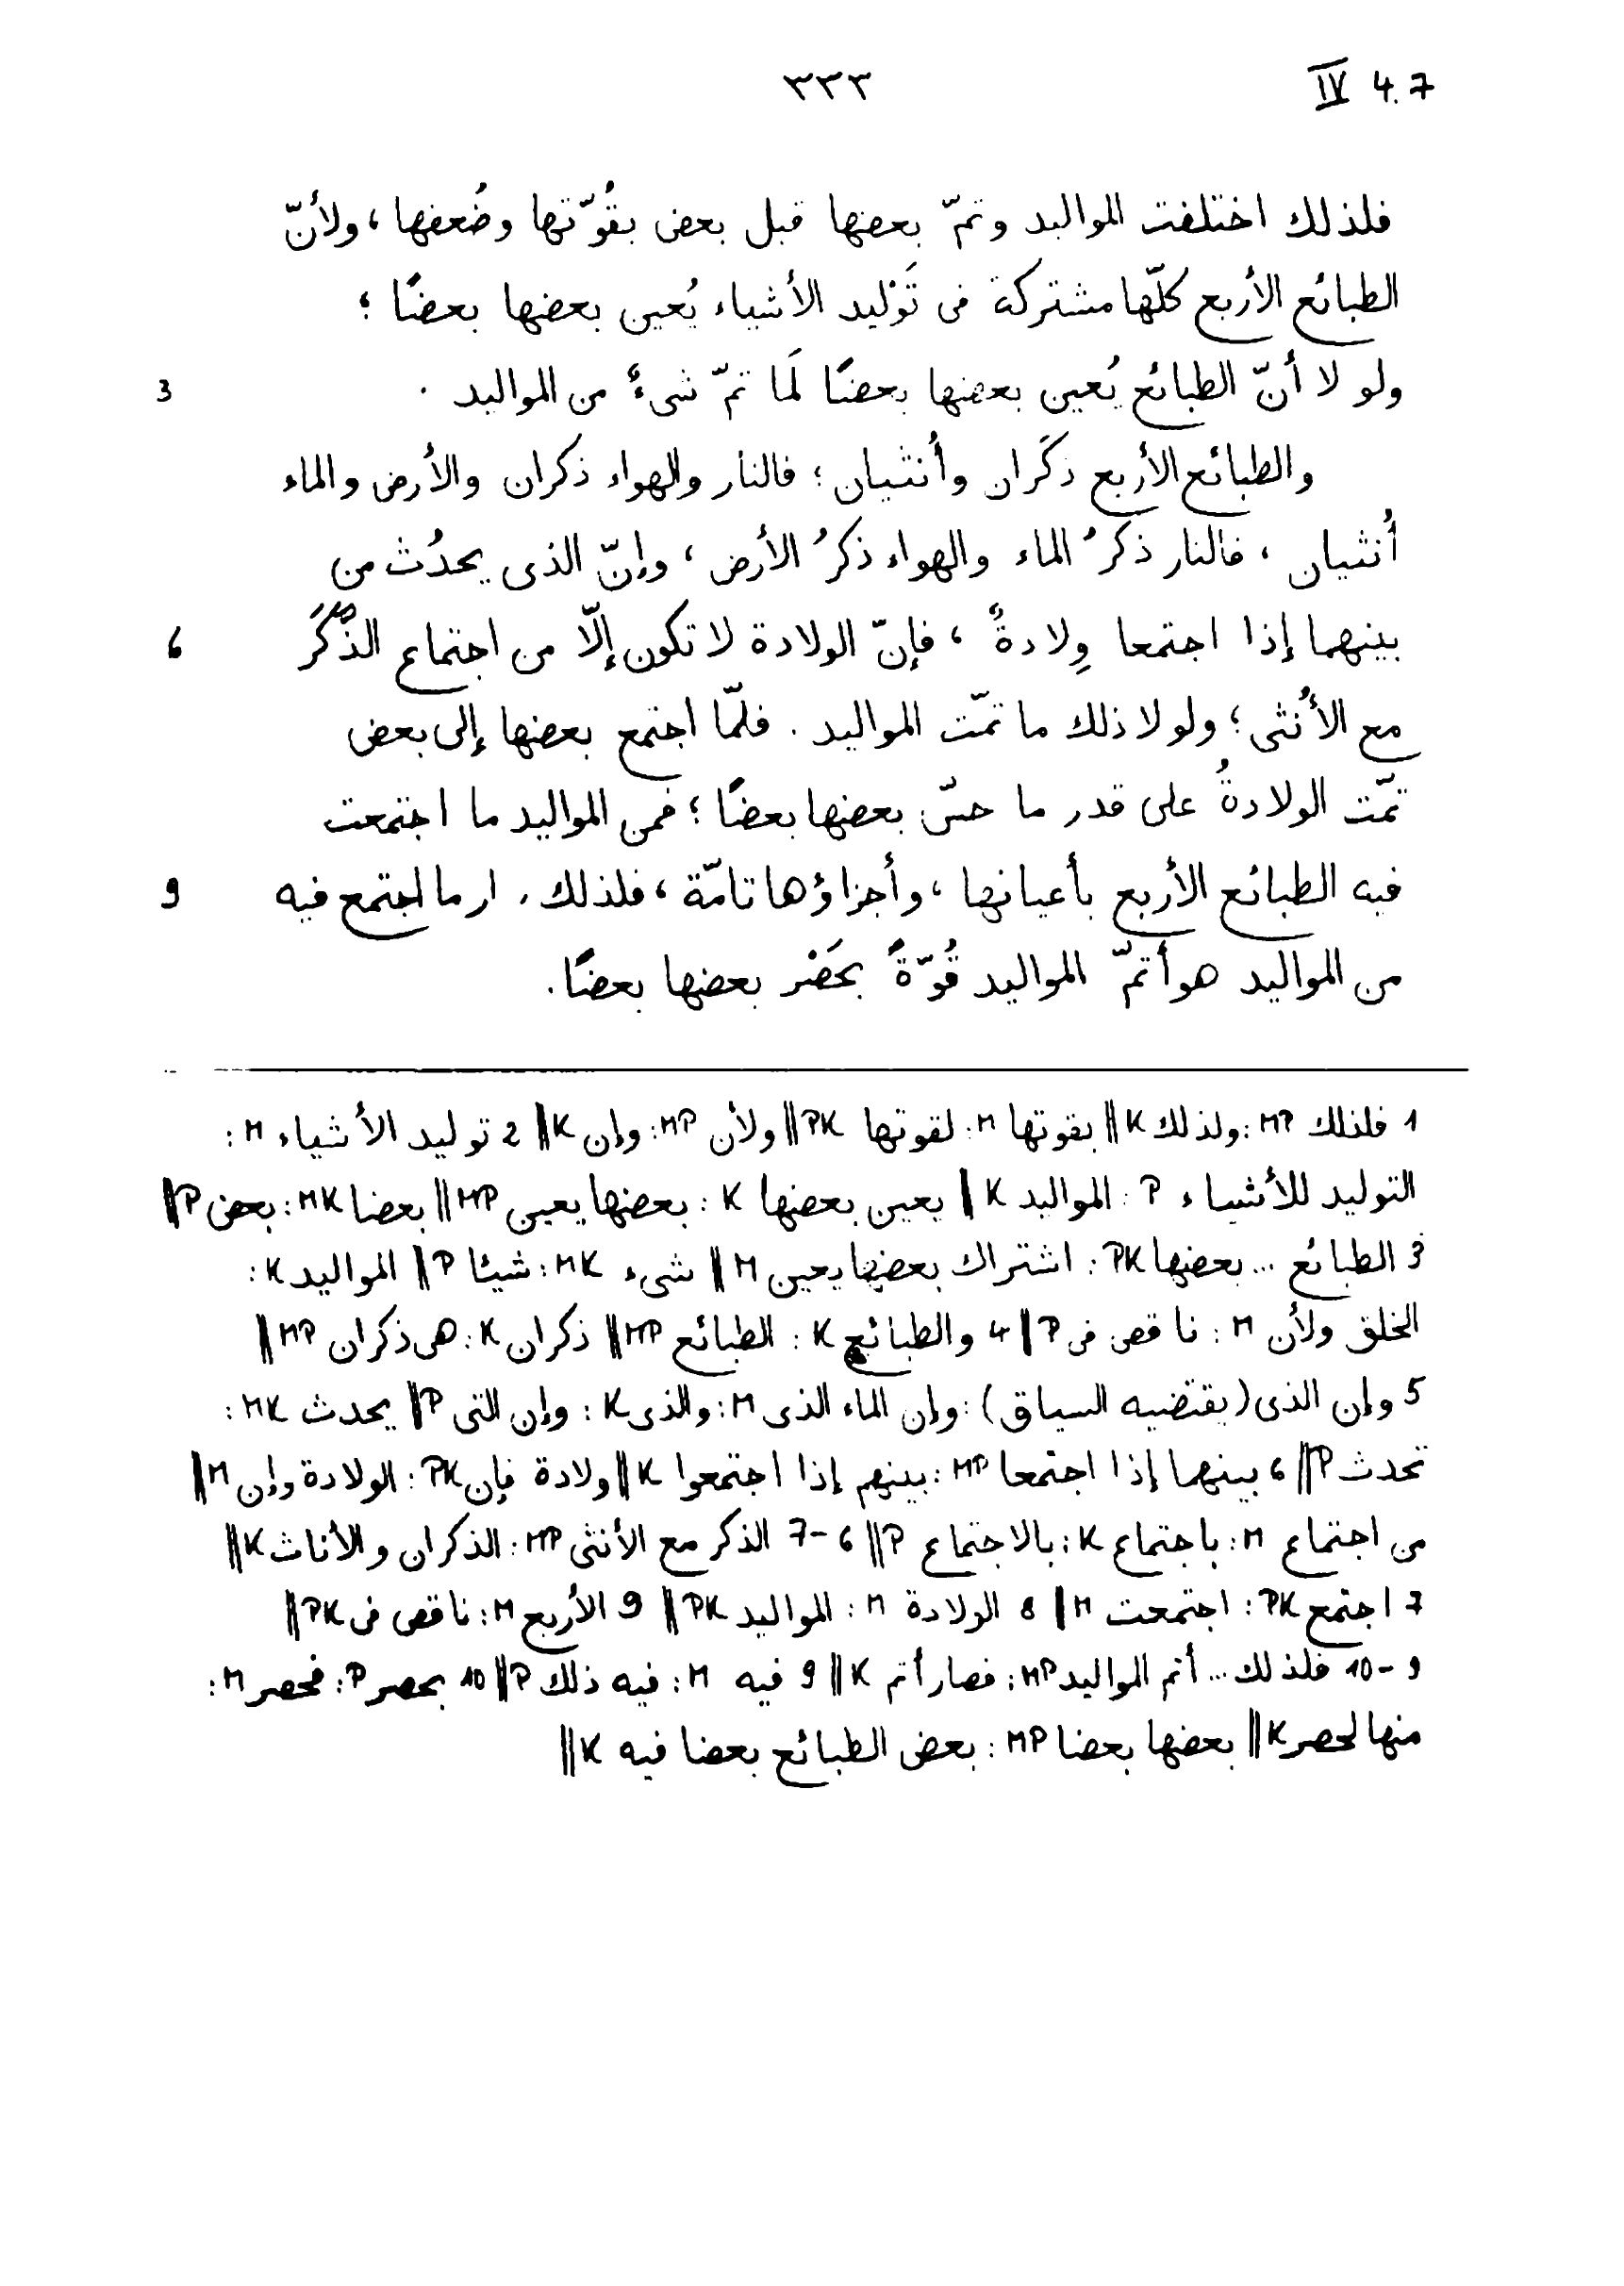 IV 4.7 ٣٣٣
فلذلك اختلفت المواليد وتمّ بعضها قبل بعض بقُوّتها وضُعفها، ولأنّ
الطبائع الأربع كلّها مشتركة فى تَوْليد الأشياء يُعين بعضها بعضًا؛
ولو لا أنّ الطبائع يُعين بعضها بعضًا لَما تمّ شىءٌ من المواليد . 3
والطبائع الأربع ذكَران وأُنثيان؛ فالنار والهواء ذكران والأرض والماء
أُنثيان، فالنار ذكرُ الماء والهواء ذكرُ الأرض، وإنّ الذى يحدُث من
بينهما إذا اجتمعا وِلادةٌ، فإنّ الولادة لا تكون إلّا من اجتماع الذَّكَر 6
مع الأُنثى؛ ولو لا ذلك ما تمّت المواليد. فلمّا اجتمع بعضها إلى بعض
تمّت الولادةُ على قدر ما حسّ بعضها بعضًا؛ فمن المواليد ما اجتمعت
فيه الطبائع الأربع بأعيانها، وأجزاؤها تامّة، فلذلك ما اجتمع فيه 9
من المواليد هو أتمّ المواليد قُوّةً بحَصْر بعضها بعضًا.
1 فلذلك MP: ولذلك K || بقوتها M: لقوتها PK || ولأن MP: وإن K || 2 توليد الأشياء M:
التوليد للأشياء P: المواليد K || يعين بعضها K: بعضها يعين MP || بعضا MK: بعض P ||
3 الطبائع ... بعضها PK: اشتراك بعضها يعين M || شىء MK: شيئا P || المواليد K:
الخلق ولأن M: ناقص فى P || 4 والطبائع K: الطبائع MP || ذكران K: هى ذكران MP ||
5 وإن الذى (يقتضيه السياق): وإن الماء الذى M: والذى K: وإن التى P || يحدث MK:
تحدث P || 6 بينهما إذا اجتمعا MP: بينهم إذا اجتمعوا K || ولادة فإن PK: الولادة وإن M ||
من اجتماع M: باجتماع K: بالاجتماع P || 6-7 الذكر مع الأنثى MP: الذكران والأناث K ||
7 اجتمع PK: اجتمعت M || 8 الولادة M: المواليد PK || 9 الأربع M: ناقص فى PK ||
9-10 فلذلك ... أتم المواليد MP: فصار أتم K || 9 فيه M: فيه ذلك P || 10 بحصر P: فحصر M:
منها لحصر K || بعضها بعضا MP: بعض الطبائع بعضا فيه K ||